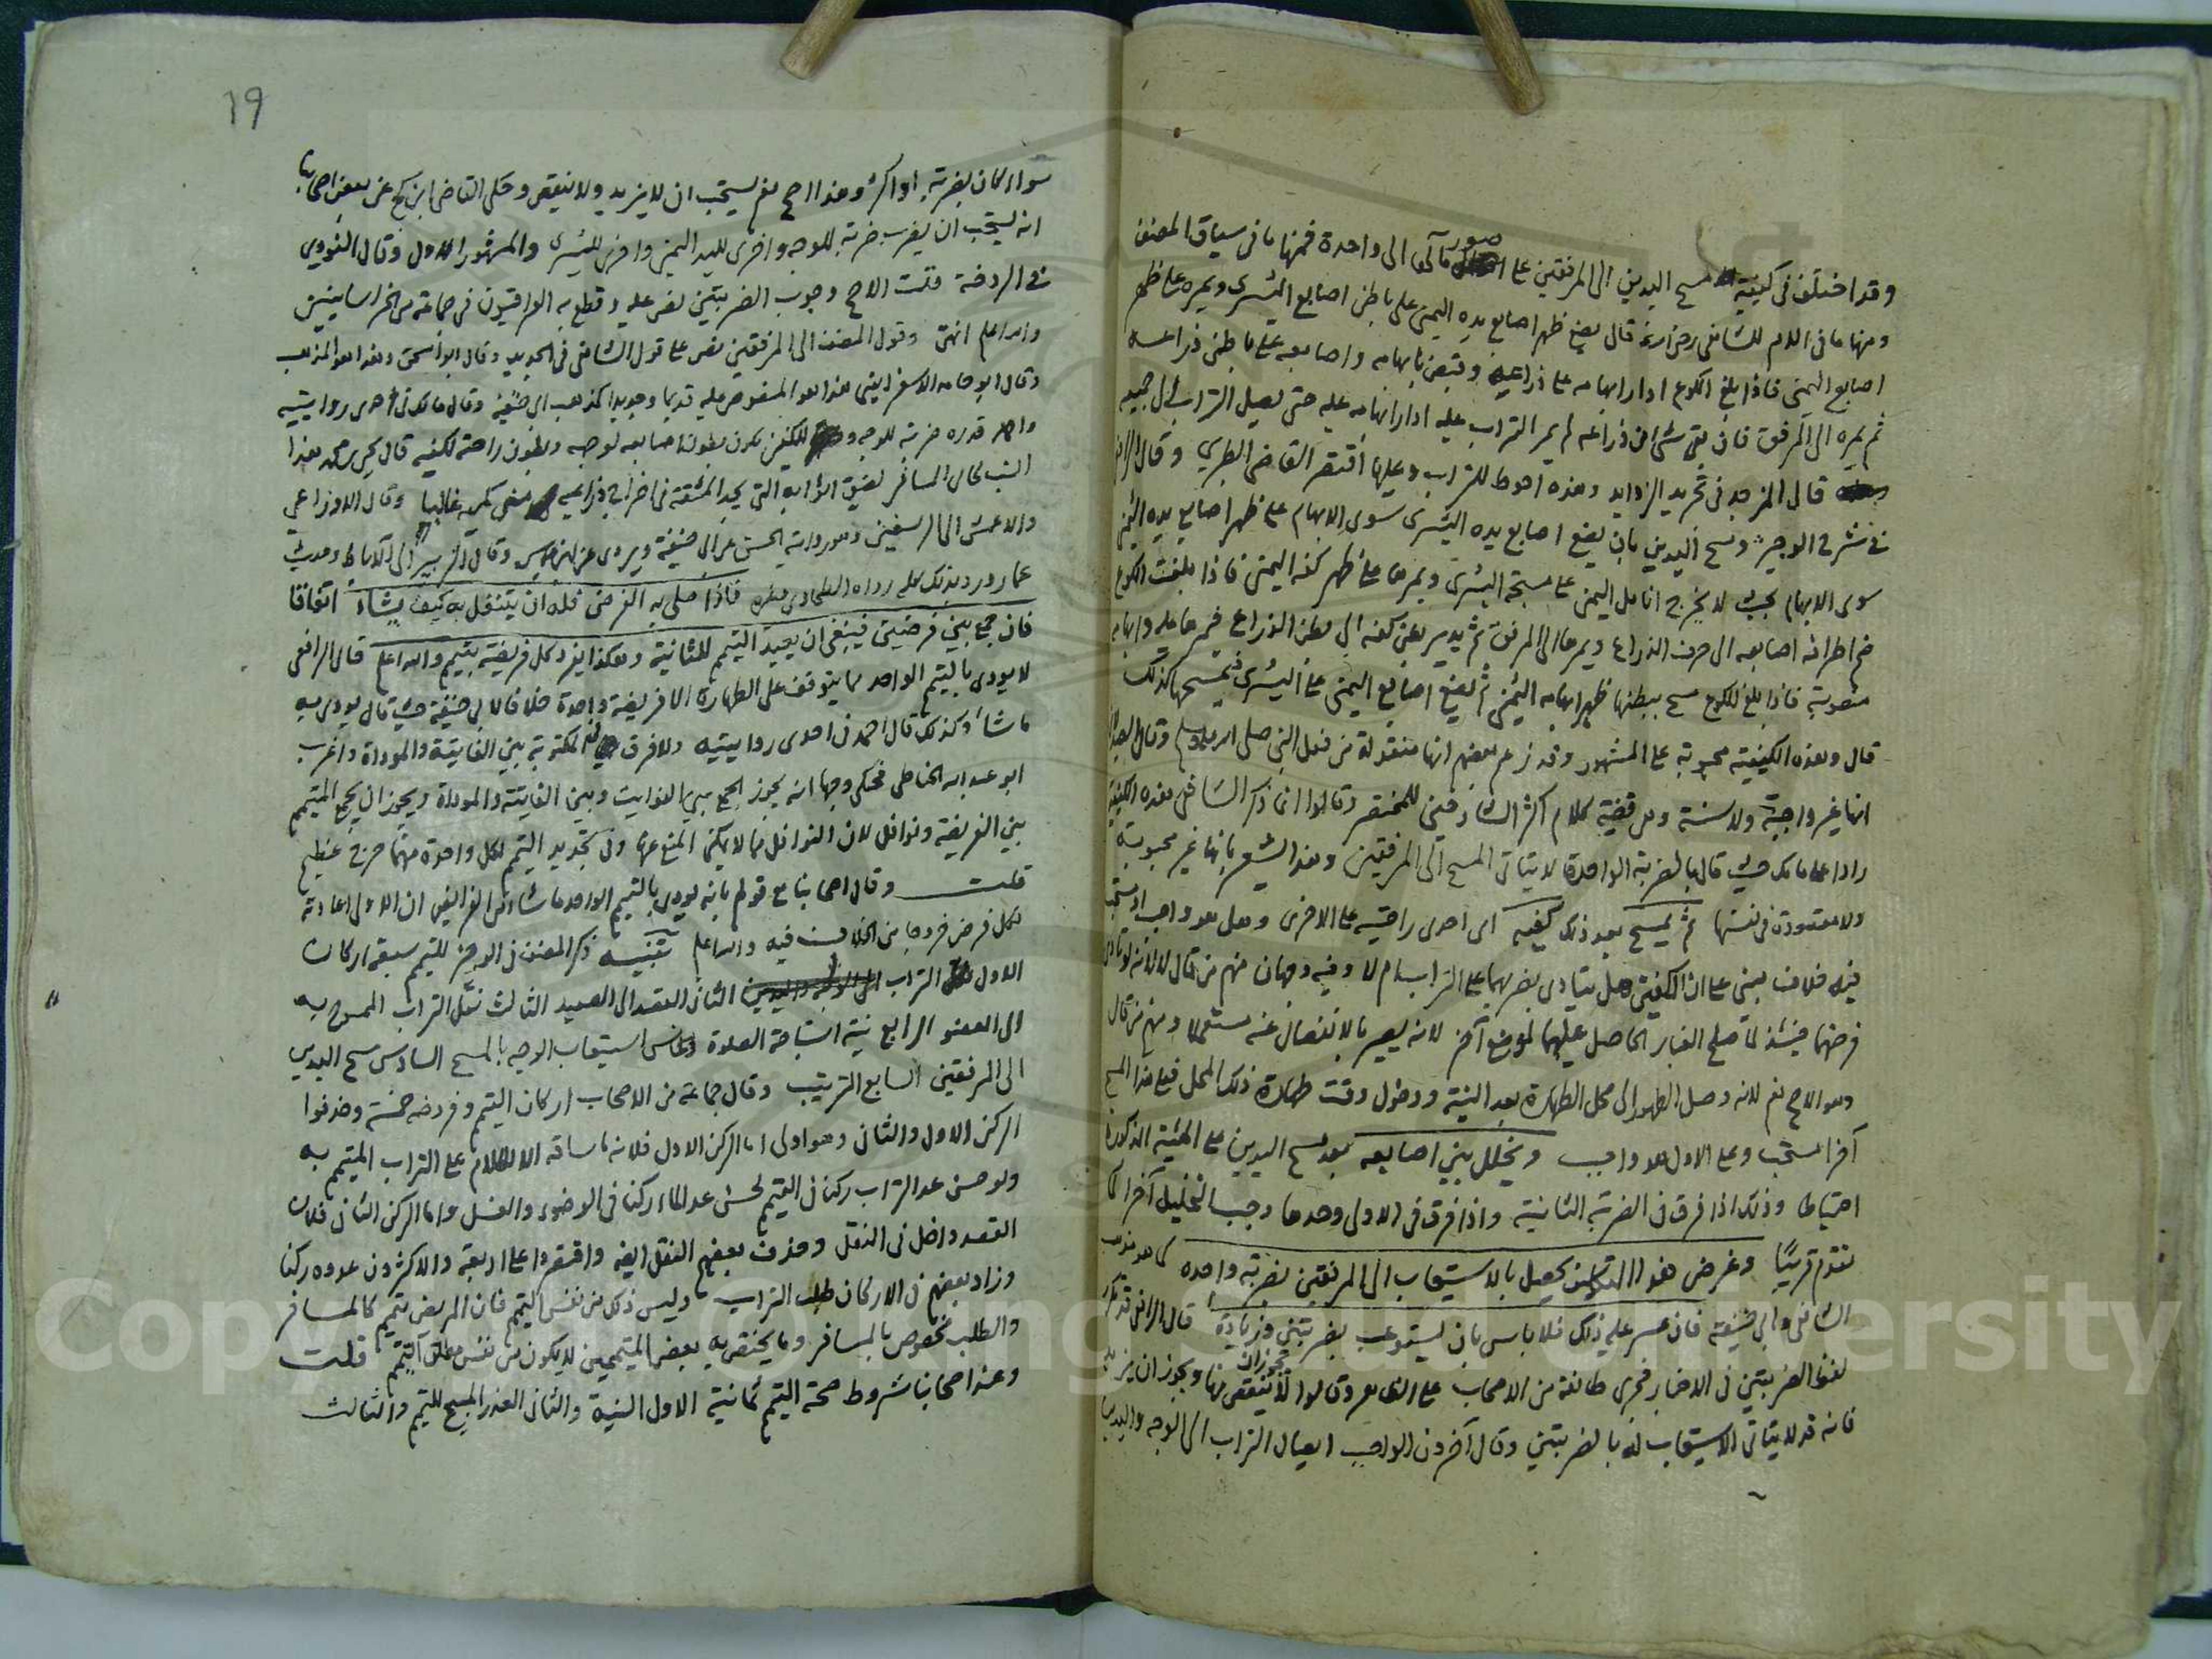 وقد اختلف في كيفية مسح اليدين الى المرفقين على صور مآلها الى واحدة فمنها ما في سياق المصنف
ومنها ما في الام للشافعي رضي الله عنه قال يضع ظهر اصابع يده اليمنى على باطن اصابع اليسرى ويمره على ظهر
اصابع اليمنى فاذا بلغ الكوع ادار ابهامه على ذراعيه وقبض بابهامه واصابعه على باطن ذراعه
ثم يمره الى المرفق فان بقي شئ من ذراعه لم يمر التراب عليه ادار ابهامه عليه حتى يصل التراب الى جميعه
قال المزجد في تجريد الزوايد وهذه احوط للتراب وعليها اقتصر القاضي الطبري وقال الرافعي
في شرح الوجيز ومسح اليدين بان يضع اصابع يده اليسرى سوى الابهام على ظهر اصابع يده اليمنى
سوى الابهام بحيث لا يخرج انامل اليمنى على مسبحة اليسرى ويمرها على ظهر كفه اليمنى فاذا بلغت الكوع
ضم اطراف اصابعه الى حرف الذراع ويمرها الى المرفق ثم يدير بطن كفه الى بطن الذراع فيمرها عليه وابهامه
منصوبة فاذا بلغ الكوع مسح ببطنها ظهر ابهامه اليمنى ثم يضع اصابع اليمنى على اليسرى فيمسحها كذلك
قال وهذه الكيفية محبوبة على المشهور وقد زعم بعضهم انها منقولة من فعل النبي صلى الله عليه وسلم وقال
انها غير واجبة ولا سنة وهي قضية كلام اكثر الشارحين للمختصر وقالوا انما ذكر الشافعي هذه الكيفية
رادا على مالك حيث قال بالضربة الواحدة لا يتاتى المسح الى المرفقين وهذا يشعر بانها غير محبوبة
ولا مقصودة في نفسها ثم يمسح بعد ذلك كفيه اى احدى راحتيه على الاخرى وهل هو واجب او مستحب
فيه خلاف مبني على ان الكفين هل يتادى بضربهما على التراب ام لا وفيه وجهان منهم من قال لا لانه لو تادى
فرضهما حينئذ لما صلح الغبار الحاصل عليهما لموضع آخر لانه يصير بالانفصال عنه مستعملا ومنهم من قال
وهو الاصح نعم لانه وصل الطهور الى محل الطهارة بعد النية ودخول وقت طهارة ذلك المحل فعلى هذا المسح
آخرا مستحب وعلى الاول هو واجب ويخلل بين اصابعه بعد مسح اليدين على الهيئة المذكورة
احتياطا وذلك اذا فرق في الضربة الثانية واذا فرق في الاولى وحدها وجب التخليل آخرا كما
تقدم قريبا وغرض هذا التكليف تحصيل الاستيعاب الى المرفقين بضربة واحدة كما هو مذهب
الشافعي وابي حنيفة فان عسر عليه ذلك فلا باس بان يستوعب بضربتين وزيادة قال الرافعي قد تكرر
لفظ الضربتين في الاخبار فجرى طائفة من الاصحاب على الظاهر وقالوا لا يجوز ان ينقص منها ويجوز ان يزيد
فانه قد لا يتاتى الاستيعاب له بالضربتين وقال آخرون الواجب ايصال التراب الى الوجه واليدين
19
سواء كان بضربة او اكثر وهذا الاصح نعم يستحب ان لا يزيد ولا ينقص وحكى القاضي ابن كج عن بعض اصحابنا
انه يستحب ان يضرب ضربة للوجه واخرى لليد اليمنى واخرى لليسرى والمشهور الاول وقال النووي
في الروضة قلت الاصح وجوب الضربتين نص عليه وقطع به العراقيون في جماعة من الخراسانيين
والله اعلم انتهى وقول المصنف الى المرفقين نص على قول الشافعي في الجديد وقال ابو اسحق وهذا هو المذهب
وقال ابو حامد الاسفرايني هذا هو المنصوص عليه قديما وجديدا كمذهب ابي حنيفة وقال مالك في احدى روايتيه
واحمد قدره ضربة للوجه والكفين يكون بطون اصابعه لوجهه وبطون راحته لكفيه قال يحيى بن محمد هذا
انسب لحال المسافر لضيق اثوابه التي يجد المشقة في اخراج ذراعيه من كميه غالبا وقال الاوزاعي
والاعمش الى الرسغين وهو رواية الحسن عن ابي حنيفة ويروى عن ابن عباس وقال الزهري الى الآباط وحديث
عمار ورد بذلك كله رواه الطحاوي وغيره فاذا صلى به الفرض فله ان يتنفل به كيف يشاء اتفاقا
فان جمع بين فرضين فينبغي ان يعيد التيمم للثانية وهكذا يفرد كل فريضة بتيمم والله اعلم قال الرافعي
لا يودى بالتيمم الواحد مما يتوقف على الطهارة الا فريضة واحدة خلافا لابي حنيفة حيث قال يودى به
ما شاء وكذلك قال احمد في احدى روايتيه ولا فرق في المكتوبة بين الفايتة والموداة واغرب
ابو عبد الله الحناطي فحكى وجها انه يجوز الجمع بين الفوايت وبين الفايتة والموداة ويجوز ان يجمع المتيمم
بين الفريضة ونوافل لان النوافل مما لا يمكن المنع عنها وفي تجديد التيمم لكل واحدة منهما حرج عظيم
قلت وقال اصحابنا مع قولهم بانه يودى بالتيمم الواحد ما شاء من الفرايض ان الاولى اعادته
لكل فرض خروجا من الخلاف فيه والله اعلم تنبيه ذكر المصنف في الوجيز للتيمم سبعة اركان
الاول التراب الثاني القصد الى الصعيد الثالث نقل التراب الممسوح به
الى العضو الرابع نية استباحة الصلاة الخامس استيعاب الوجه بالمسح السادس مسح اليدين
الى المرفقين السابع الترتيب وقال جماعة من الاصحاب اركان التيمم وفروضه خمسة وحذفوا
الركن الاول والثاني وهو اولى اما الركن الاول فلانه ما ساقه الا للكلام على التراب المتيمم به
ولو حسن عد التراب ركنا في التيمم لحسن عد الماء ركنا في الوضوء والغسل واما الركن الثاني فلان
القصد داخل في النقل وحذف بعضهم النقل ايضا واقتصروا على اربعة والاكثرون عدوه ركنا
وزاد بعضهم في الاركان طلب التراب وليس ذلك من نفس التيمم فان المريض يتيمم كالمسافر
والطلب مخصوص بالمسافر وما يختص به بعض المتيممين لا يكون من نفس مطلق التيمم قلت
وعند اصحابنا شروط صحة التيمم ثمانية الاول النية والثاني العذر المبيح للتيمم والثالث
Copyright © King Saud University